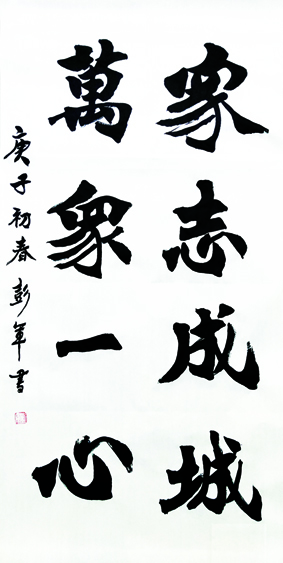 衆志成城
萬眾一心
庚子初春彭軍書